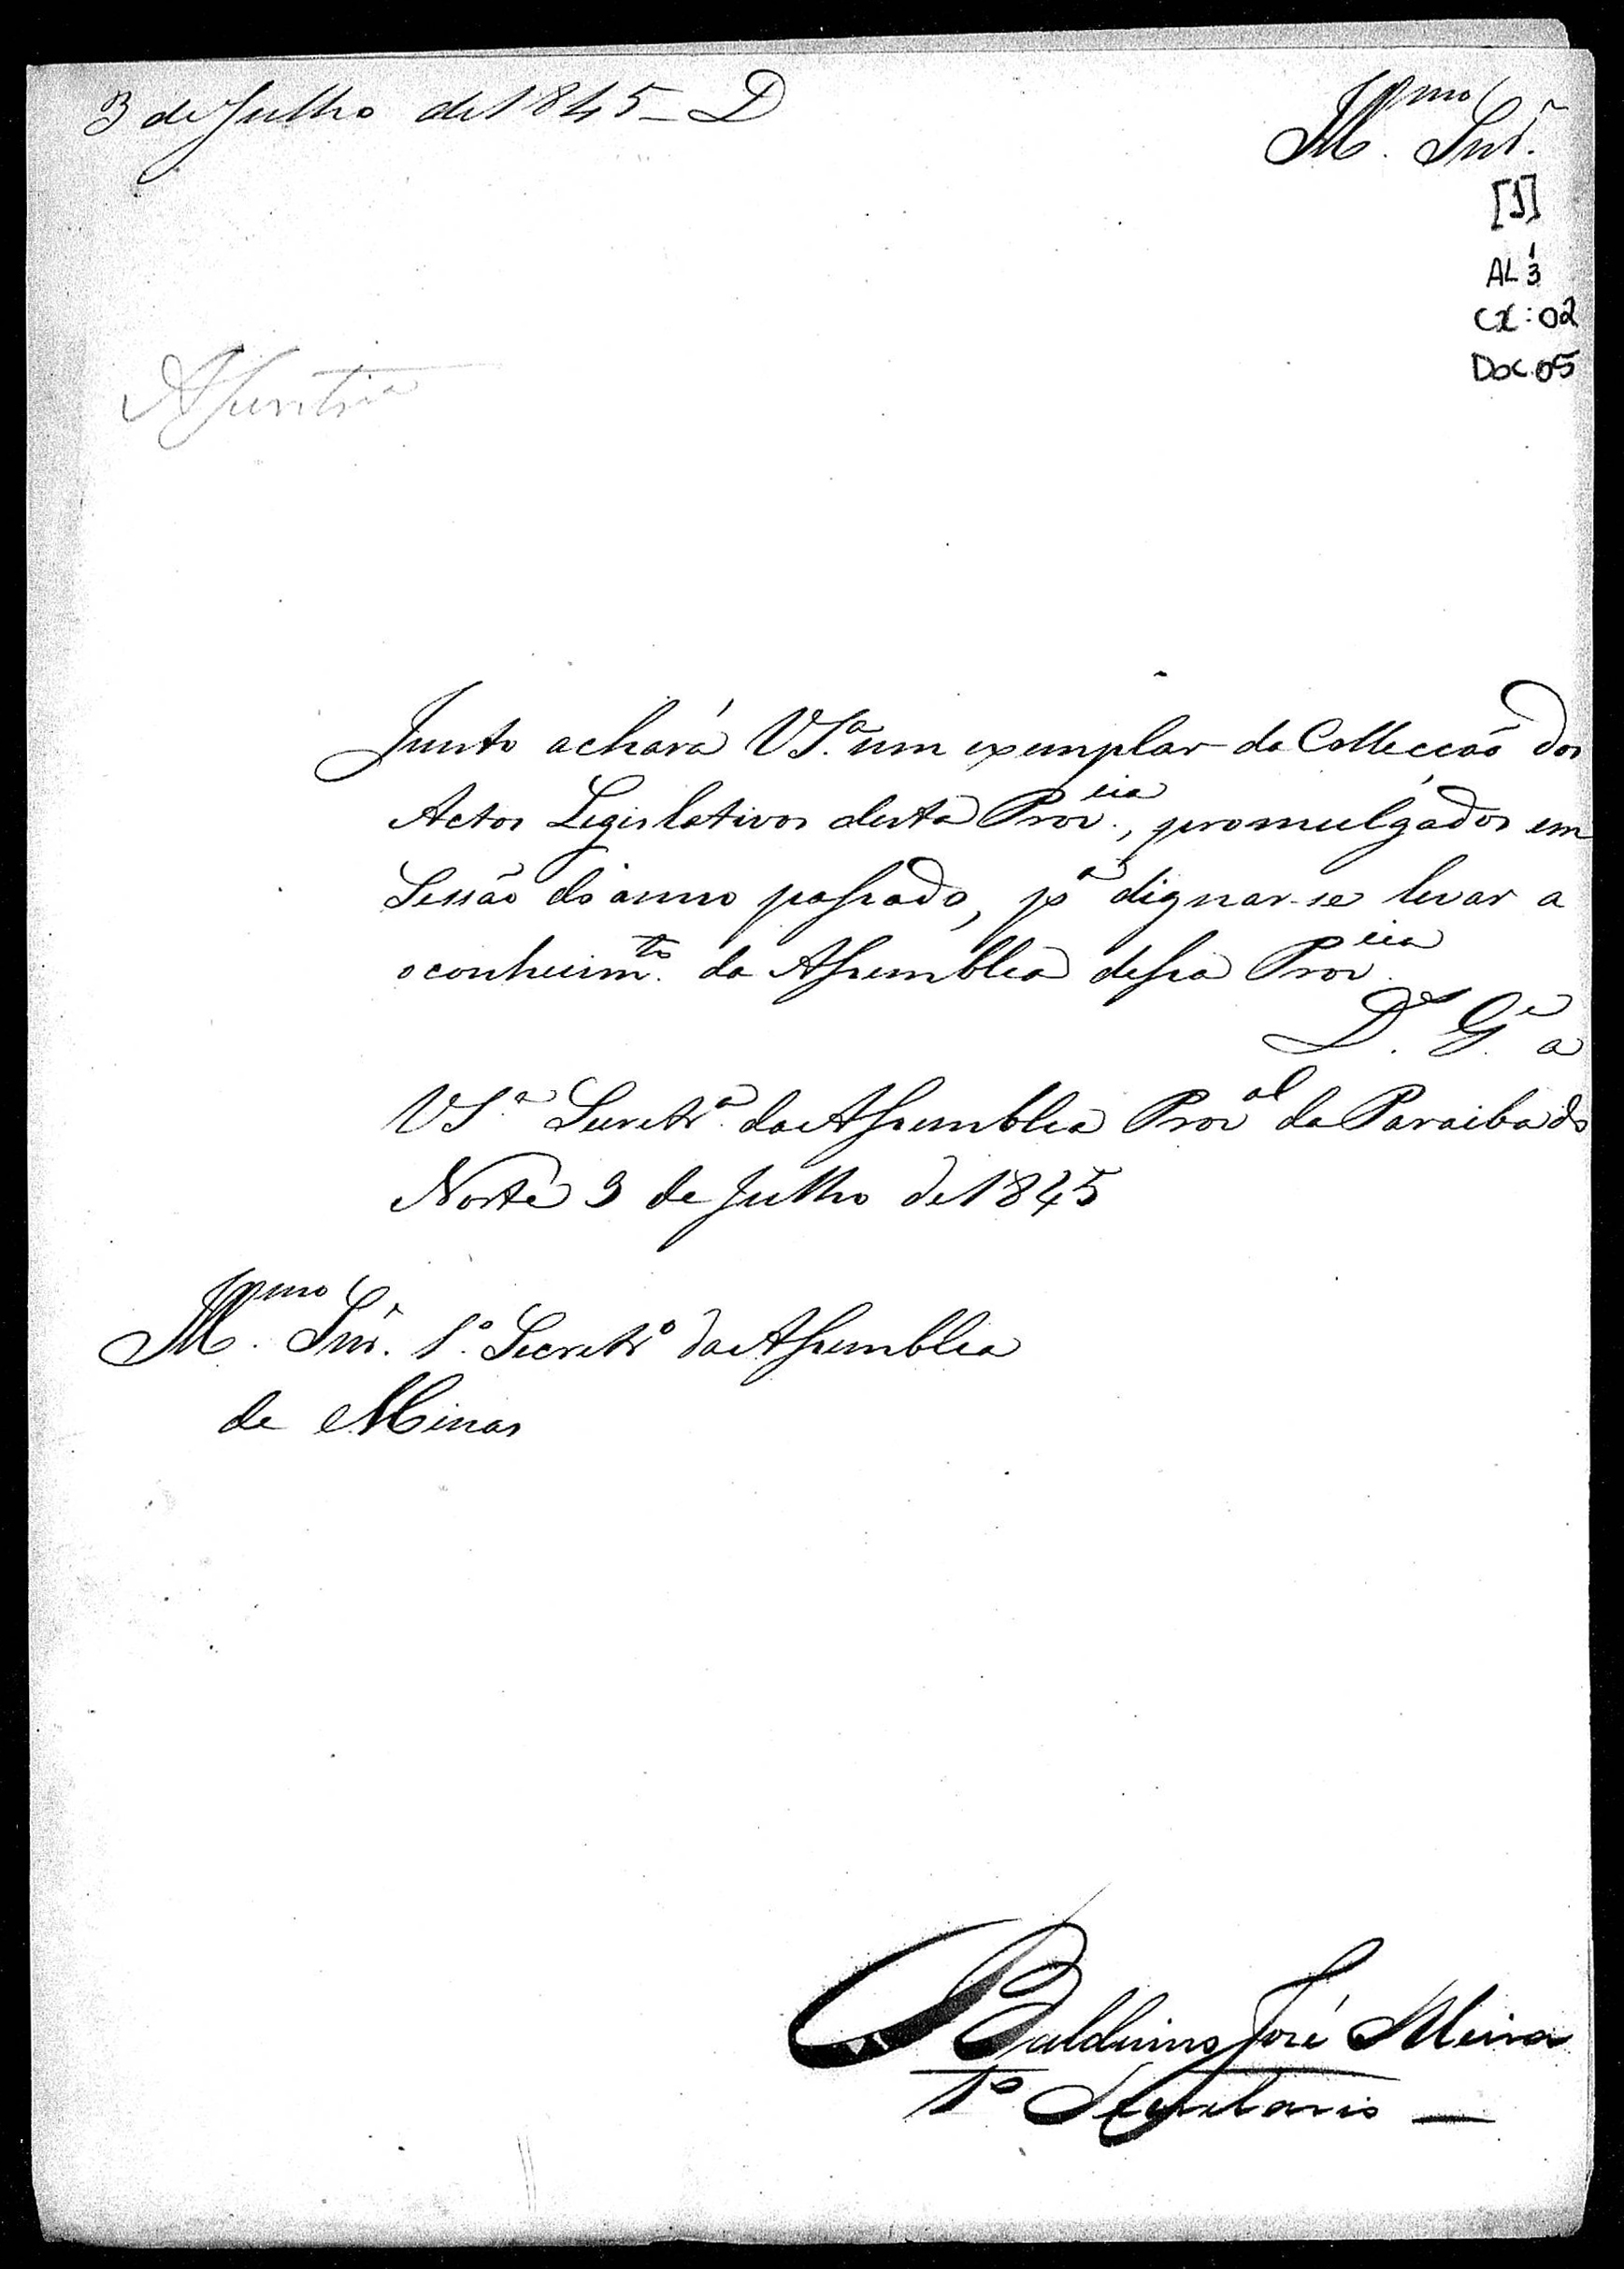 3 de Julho de 1845 - D
Illmo Snr.
[1]
AL 1
3
CX: 02
Doc. 05
Junto achará VSa. um exemplar da Collecção dos
Actos Legislativos desta Provcia., promulgados em
Sessão do anno passado, pa dignar-se levar a
o conhecimto. da Assemblea dessa Provcia.
Ds. Ge. a
VSa Secretra. da Assemblea Proval da Paraiba do
Norte 3 de Julho de 1845
Illmo. Snr. 1º. Secretrº da Assemblea
de Minas
Balduino José Meira
1º Secretario —